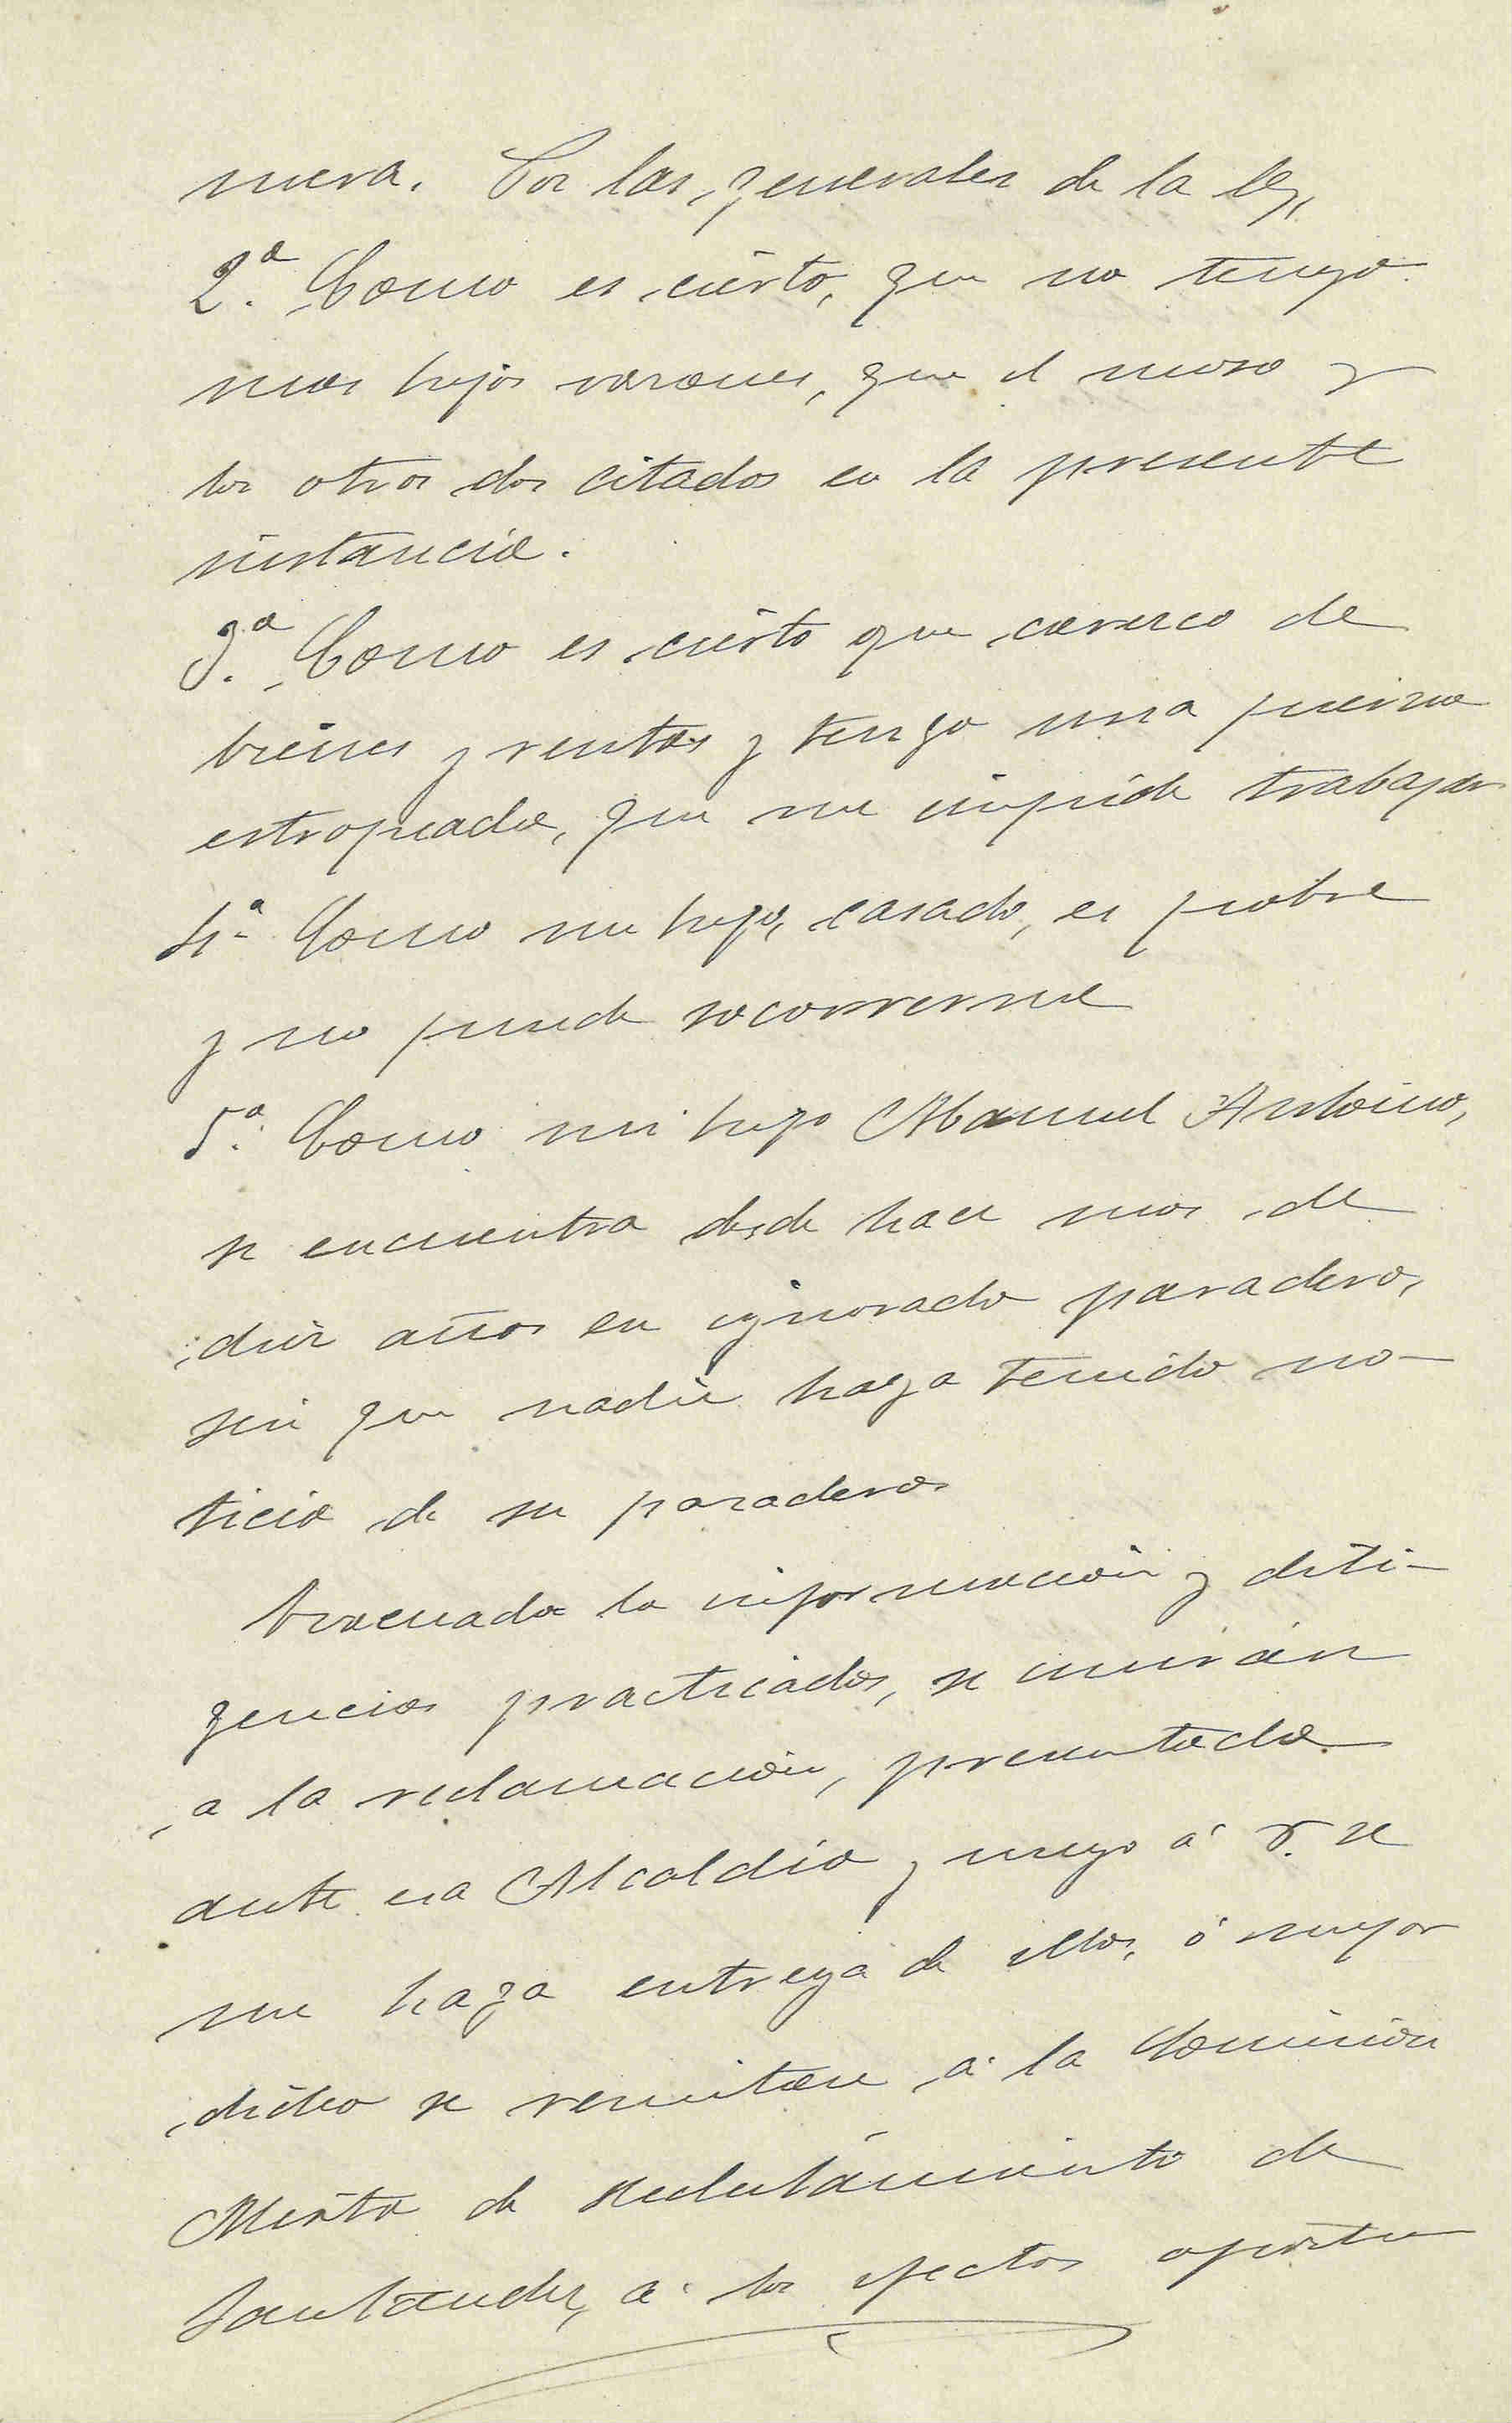 mera. Por las generales de la ley,
2.ª Como es cierto, que no tengo
mas hijos varones, que el mozo y
los otros dos citados en la presente
instancia.
3.ª Como es cierto que carezco de
bienes y rentas y tengo una pierna
estropeada, que me impide trabajar
4ª Como mi hijo, casado, es pobre
y no puede socorrerme
5.ª Como mi hijo Manuel Antonio,
se encuentra desde hace mas de
diez años en ignorado paradero,
sin que nadie haya tenido no-
ticia de su paradero
Evacuada la información y dili-
gencias practicadas, se unirán
a la reclamación, presentada
ante esa Alcaldía y ruego á V. se
me haga entrega de ellos, ó mejor
dicho se remitan á la Comision
Mixta de Reclutamiento de
Santander, á los efectos oportu